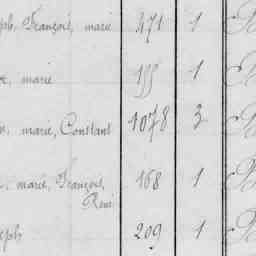 ph, François, marie 471 1
marie 155 1
marie, Constant 1078 3
marie, François, 168 1
René
seph 209 1